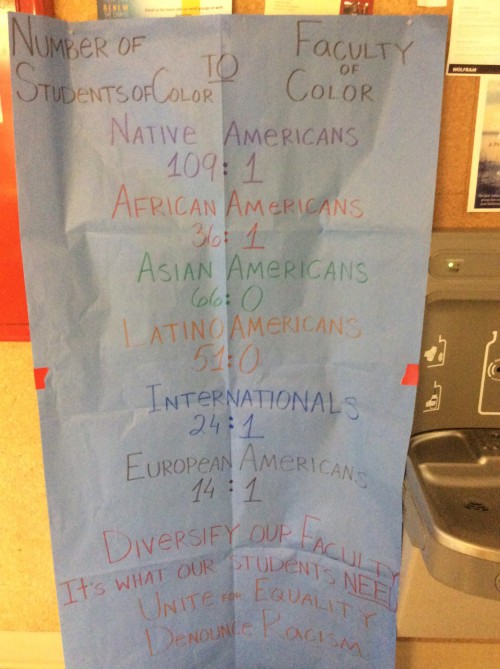 Number of Students of Color
TO
Faculty of Color
Native Americans
109:1
African Americans
36:1
Asian Americans
66:0
Latino Americans
51:0
Internationals
24:1
European Americans
14:1
Diversify our Faculty
It's what our students NEED
Unite for Equality
Denounce Racism
WOLFRAM